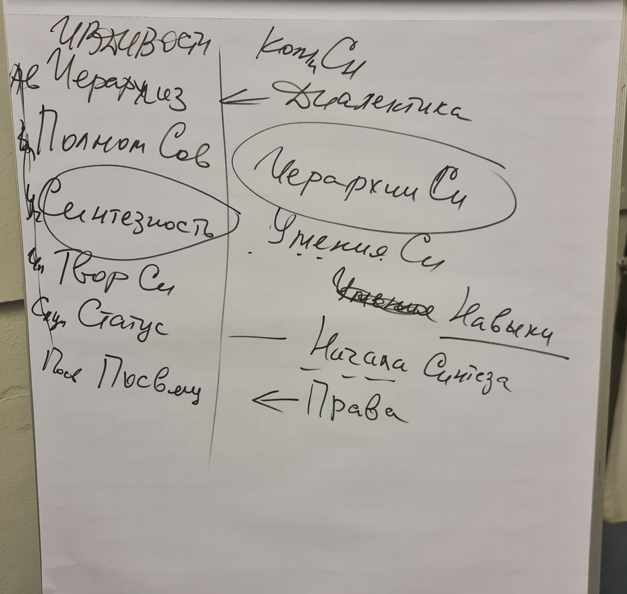 ИВДИВОСТИ
Ав Иерархиз
Полном Сов
Синтезность
Твор Си
Статус
Посв Посвящ
Конц Си
← Диалектика
Иерархии Си
Умения Си
Навыки
Начала Синтеза
← Права